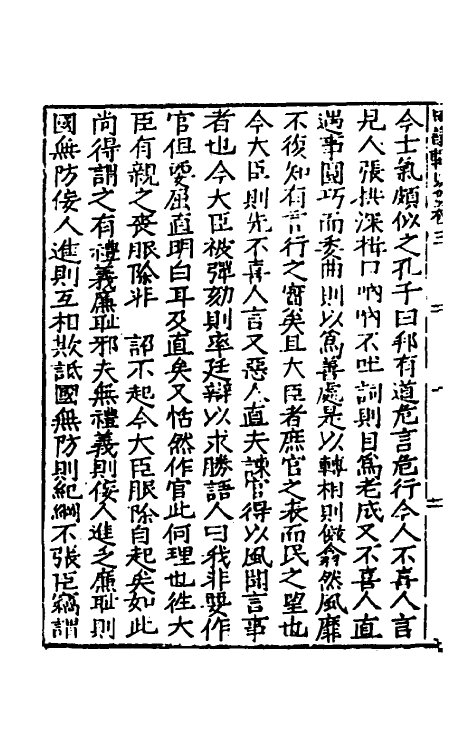 今士氣頗似之孔子曰邦有道危言危行今人不喜人言
見人張拱深揖口吶吶不吐詞則目爲老成又不喜人直
遇事圓巧而委曲則以爲善處是以轉相則倣翕然風靡
不復知有言行之實矣且大臣者庶官之表而民之望也
今大臣則先不喜人言又惡人直夫諫官得以風聞言事
者也今大臣被彈劾則率廷辯以求勝語人曰我非要作
官但要屈直明白耳及直矣又恬然作官此何理也徃大
臣有親之喪服除非 詔不起今大臣服除自起矣如此
尚得謂之有禮義廉耻邪夫無禮義則佞人進乏廉耻則
國無防佞人進則互相欺詆國無防則紀綱不張臣竊謂